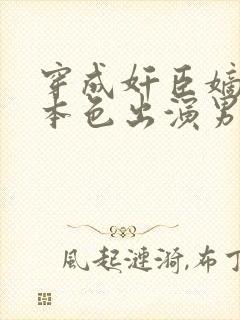 穿成奸臣嫡
本色出演男
風起漣漪,布丁